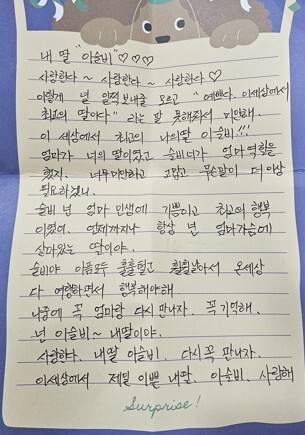 내 딸 "이슬비" ♡♡♡
사랑한다 ~ 사랑한다 ~ 사랑한다 ♡
이렇게 널 일찍 보내줄 모르고 "예쁘다. 이세상에서
최고의 딸이다" 라는 말 못해줘서 미안해.
이 세상에서 최고의 나의딸 이슬비!!!
엄마가 너의 딸이었고 슬비너가 엄마 역할을
했지. 너무미안하고 고맙고 무슨말이 더 이상
필요하겠니.
슬비 넌 엄마 인생에 기쁨이고 최고의 행복
이였어. 언제까지나 항상 넌 엄마가슴에
살아있는 딸이야.
슬비야 아픔모두 훌훌털고 훨훨날아서 온세상
다 여행하면서 행복해야해
나중에 꼭 엄마랑 다시 만나자. 꼭 기억해.
넌 이슬비 ~ 내딸이야.
사랑한다. 내딸 이슬비. 다시꼭 만나자.
이세상에서 제일 이쁜 내딸. 이슬비. 사랑해
Surprise!